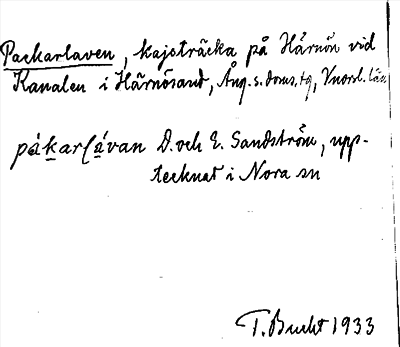 Packarlaven, kajsträcka på Härnön vid
Kanalen i Härnösand, Ång. s. doms. tg, Vnorrl. län
pá̱karḷá̱van D. och E. Sandström, upp-
tecknat i Nora sn
T. Bucht 1933